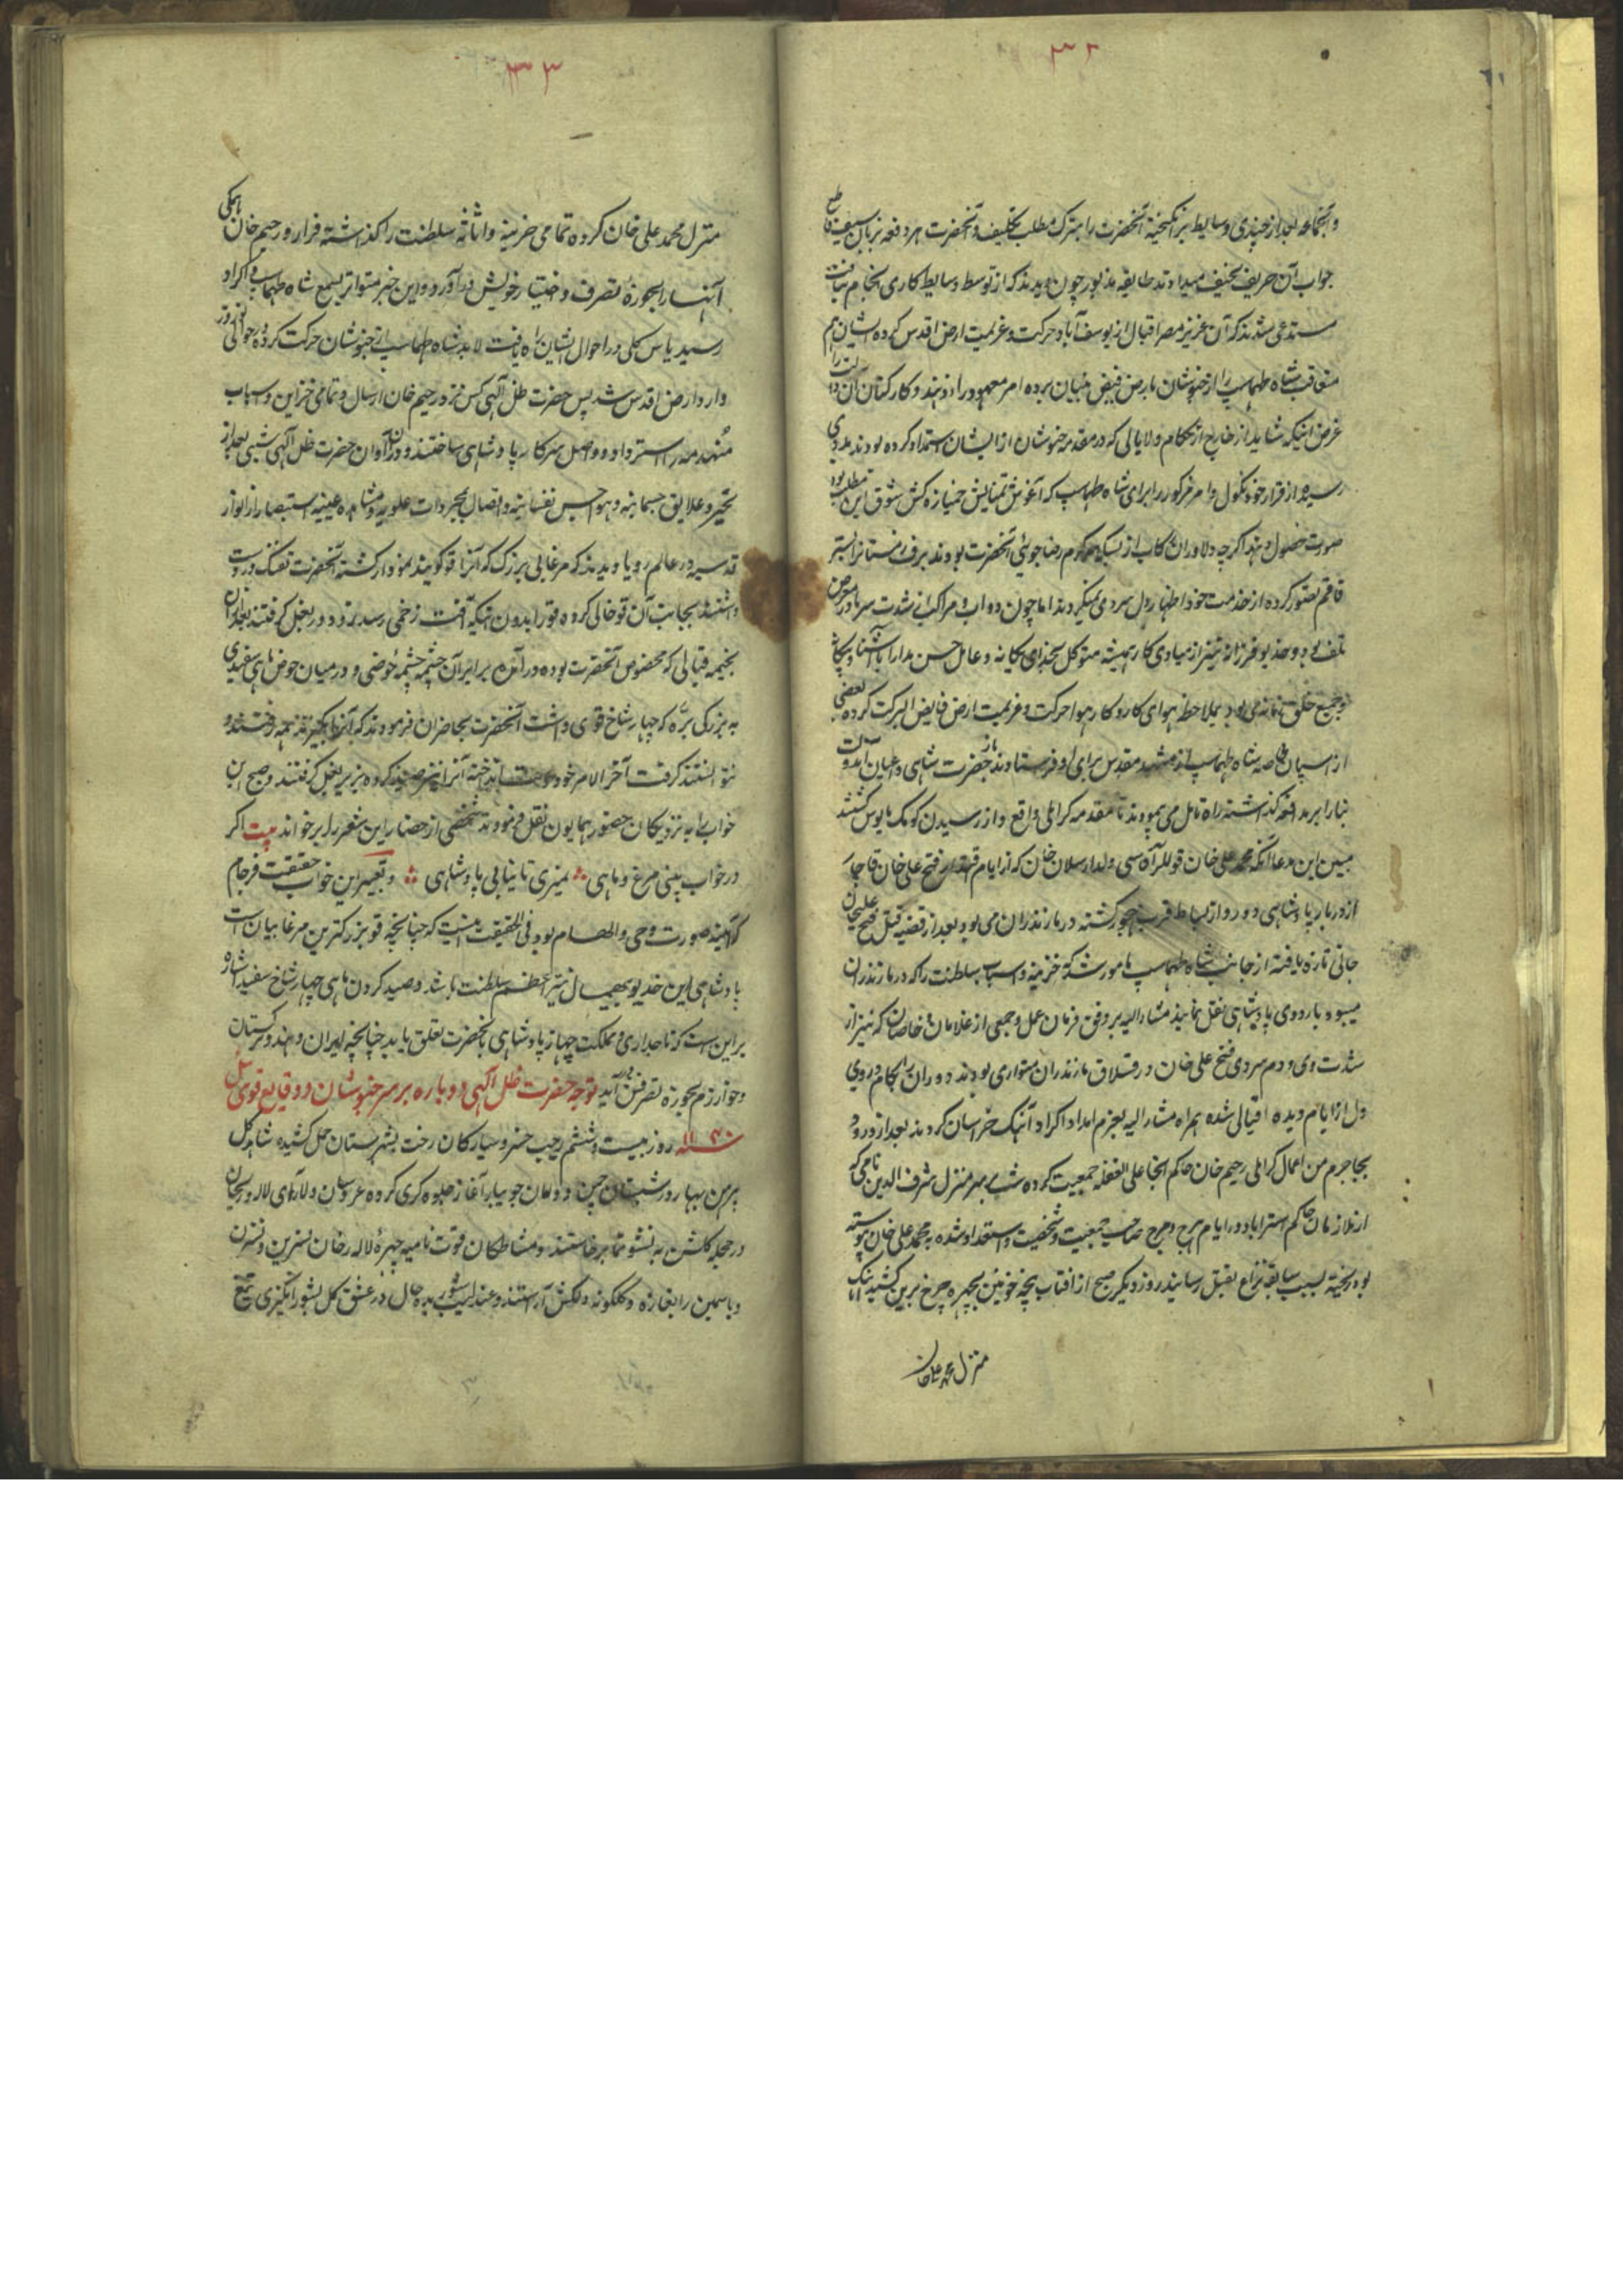 ۳۲
و آنجماعه بعد از چندی وسایط برانگیخته آنحضرت را بترک مطلب تکلیف و آنحضرت هر دفعه بزبان سیف قاطع
جواب آن حریف حنیف میدادند طایفه مذبور چون دیدند که از توسط وسایط کاری انجام نیافت
مستدعی شدند که آن عزیز مصر اقبال از یوسف آباد حرکت و عزیمت ارض اقدس کرده ایشان هم
متعاقب شاه طهماسب را از خبوشان بارض فیض بنیان برده امر معهود را و کارکنان آن دولت را
غرض اینکه شاید از خارج از حکام و لایاتی که در مقدمه خبوشان از ایشان استمداد کرده بودند مددی
رسیده از قرار خود نکول و امر مذکور را برای شاه طهماسب که آغوش تمنایش خمیازه کش شوق این مطلب بود
صورت حصول دهند اگرچه دلاوران رکاب از بسکه سرگرم رضاجوئی آنحضرت بودند برف زمستانرا بستر
قاقم تصور کرده از خدمت خود اظهار دل سردی نمیکردند اما چون دواب و مراکب از شدت سرما در معرض
تلف بود و خدیو فرزانه نیز از مبادی کار همیشه متوکل بخدای یگانه و عامل حسن مدارا با آشنا و بیگانه
و جمیع خلق زمانه می بود بملاحظه هوای کار و کار هوا حرکت و عزیمت ارض فایض البرکت کرده بعضی
از اسپان خاصه شاه طهماسب از مشهد مقدس برای او فرستادند باز حضرت شاهی و اعیان آندولت
بنا را بر مدافعه گذاشته راه تامل می پیمودند تا مقدمه کرایلی واقع و از رسیدن کومک مایوس گشتند
مبین این مدعا آنکه محمد علی خان قوللر آقاسی ولد ارسلان خان که از ایام اقتدار فتح علی خان قاجار
از دربار پادشاهی دور و از بساط قرب مهجور گشته در مازندران می بود بعد از قضیه قتل فتح علیخان
جانی تازه یافته از جانب شاه طهماسب مامور شد که خزینه و اسباب سلطنت را که در مازندران
میبود باردوی پادشاهی نقل نماید مشارالیه بر وفق فرمان عمل و جمعی از غلامان خاصان که نیز از
شدت دی و دم سردی فتح علی خان در قشلاق مازندران متواری بودند دوران را بکام و روی
دل از ایام دیده اقبالی شده همراه مشارالیه بعزم امداد اکراد آهنگ خراسان کردند بعد از ورود
بجاجرم من اعمال کرایلی رحیم خان حاکم آنجا علی الغفله جمعیت کرده شب بر سر منزل شرف الدین نامی که
از ملازمان حاکم استراباد و در ایام هرج و مرج صاحب جمعیت و شخصیت و استعداد شده بمحمد علی خان پیوسته
بود ریخته بسبب سابقه نزاع بقتل رسانید روز دیگر صبح از افتاب پنجه خونین بچهره چرخ برین کشید آهنگ
منزل محمد علیخان
۳۳
منزل محمد علی خان کرده تمامی خزینه و اثاثه سلطنت را گذاشته فرار و رحیم خان همگی
آنها را بحوزه تصرف و اختیار خویش درآورد و این خبر متواتر بسمع شاه طهماسب و اکراد
رسید یاس کلی در احوال ایشان راه یافت لابد شاه طهماسب از خبوشان حرکت کرده در حوالی نوروز
وارد ارض اقدس شد پس حضرت ظل الهی کس نزد رحیم خان ارسال و تمامی خزاین و اسباب
منهدمه را استرداد و واصل سرکار پادشاهی ساختند و در آن آوان حضرت ظل الهی شبی بعد از
تجرد علایق جسمانیه و هواجس نفسانیه و اتصال بمجردات علویه و مشاهده عینیه استبصار از انوار
قدسیه در عالم رویا دیدند که مرغابی بزرگ که آنرا قو گویند نمودار گشته آنحضرت تفنگ در دست
داشتند بجانب آن قو خالی کرده قو را بدون اینکه آفت زخمی رسد برده در بغل گرفتند بعد از آن
بخیمه قبالی که مخصوص آنحضرت بوده درآمده برابر آن چشمه چشمه حوضی و در میان حوض ماهی سفیدی
به بزرگی بره که چهار شاخ قوی داشت آنحضرت بحاضران فرمودند که آنرا بگیرند همه رفتند و
نتوانستند گرفت آخرالامر خود دست انداخته آنرا نیز صید کرده بزیر بغل گرفتند و صبح این
خواب را به نزدیکان حضور همایون نقل فرمودند شخصی از حضار این شعر را بر خواند بیت اگر
در خواب بینی مرغ و ماهی ∴ نمیری تا نیابی پادشاهی ∴ و تعبیر این خواب حقیقت فرجام
که آیینه صورت وحی و الهام بود فی الحقیقت اینست که چنانچه قو بزرگترین مرغابیان است
پادشاهی این خدیو بیهمال نیر اعظم سلطنت باشد و صید کردن ماهی چهار شاخ سفید اشاره
بر این است که تاجداری مملکت چهار پادشاهی بآنحضرت تعلق یابد چنانچه ایران و هند و ترکستان
و خوارزم بحوزه تصرفش در آید توجه حضرت ظل الهی دوباره بر سر خبوشان و وقایع قوی ئیل
سنه ۱۱۴۰ روز بیست و ششم رجب خسرو سیارگان رخت بشهرستان حمل کشیده شاهد گل
بر من بهار در شبستان چمن و دامان جویبار آغاز جلوه گری کرده عروسان دلارای لاله و ریحان
در حجله گلشن به نشو و نما برخاستند و مشاطگان قوت نامیه چهره لاله رخان نسرین و نسترن
و یاسمین را بغازه و گلگونه دلکش آراستند و عندلیب شوریده حال در عشق گل بشورانگیزی نغمه